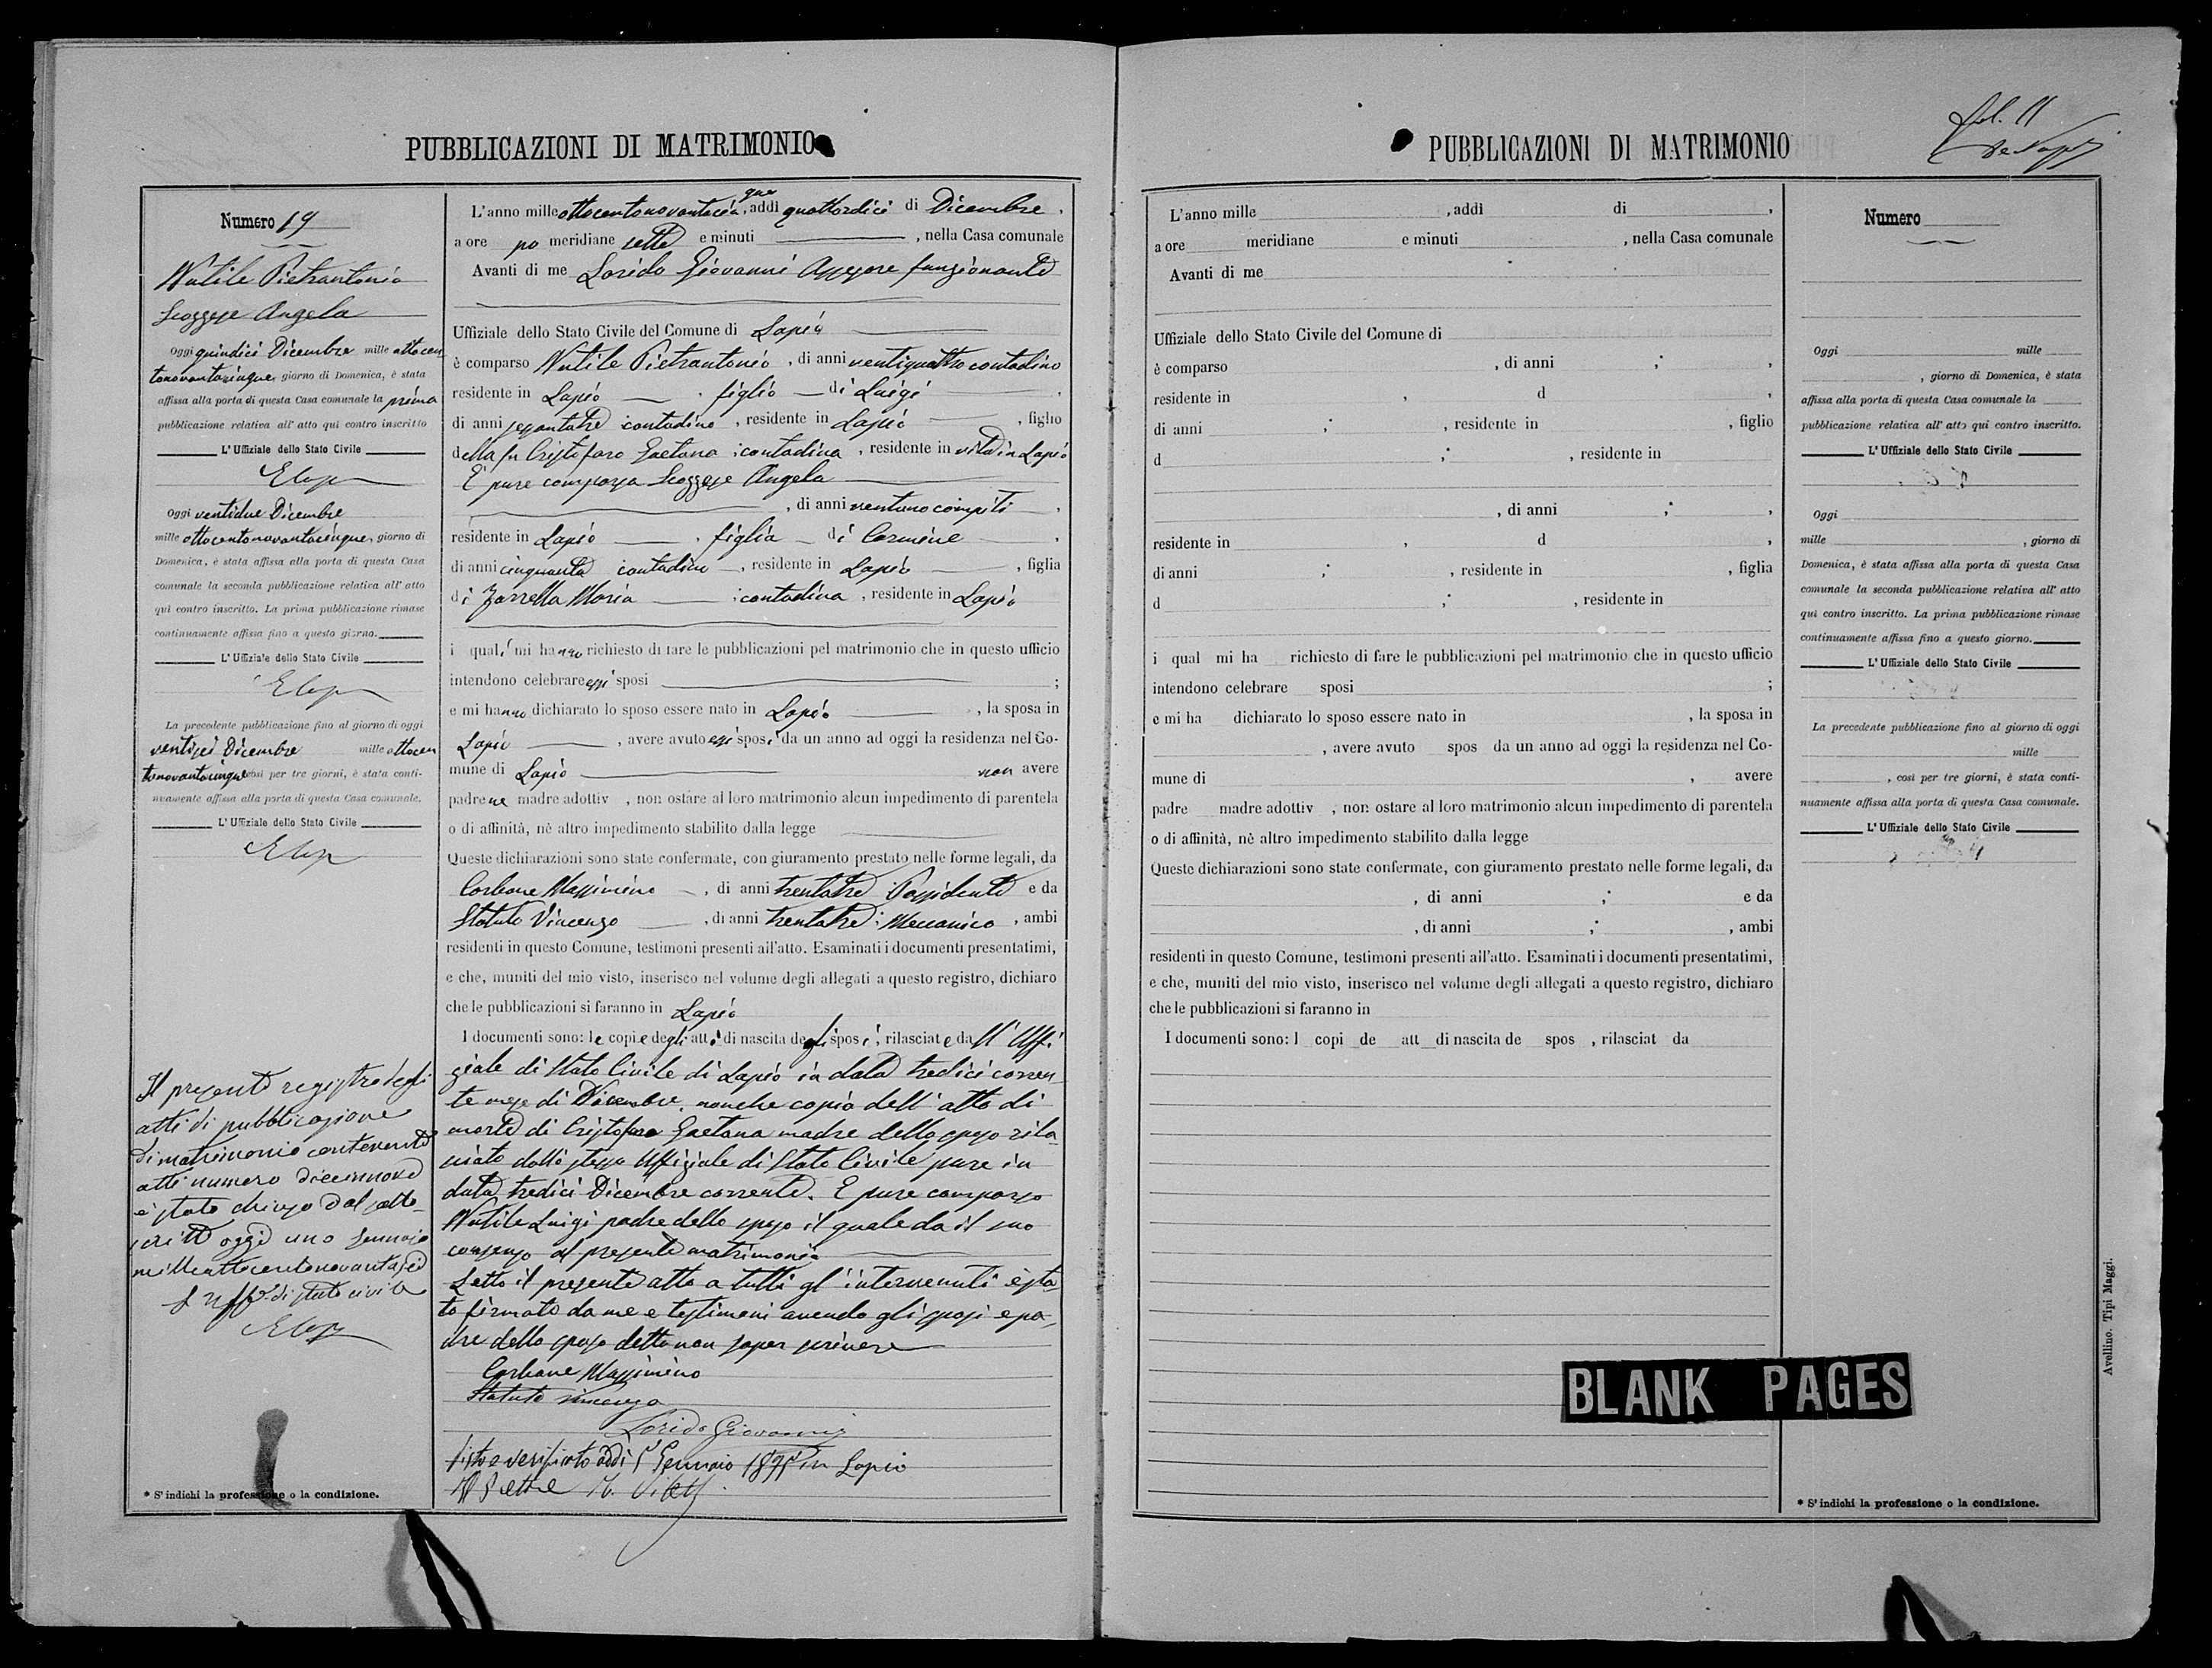 PUBBLICAZIONI DI MATRIMONIO
Numero 19
Nutile Pietrantonio
Scoggese Angela
Oggi quindici Dicembre mille ottocen
tonovantacinque, giorno di Domenica, è stata
affissa alla porta di questa Casa comunale la prima
pubblicazione relativa all' atto qui contro inscritto
L' Uffiziale dello Stato Civile
Oggi ventidue Dicembre
mille ottocentonovantacinque, giorno di
Domenica, è stata affissa alla porta di questa Casa
comunale la seconda pubblicazione relativa all' atto
qui contro inscritto. La prima pubblicazione rimase
continuamente affissa fino a questo giorno.
L' Uffiziale dello Stato Civile
La precedente pubblicazione fino al giorno di oggi
ventisei Dicembre mille ottocen
tonovantacinque così per tre giorni, è stata conti-
nuamente affissa alla porta di questa Casa comunale.
L' Uffiziale dello Stato Civile
Il presente registro degli
atti di pubblicazione
di matrimonio contenente
atti numero diecinnove
è stato chiuso dal sotto-
scritto oggi uno Gennaio
milleottocentonovantasei
L'Uff. di stato civile
* S' indichi la professione o la condizione.
L'anno mille ottocentonovantacinque, addì quattordici di Dicembre,
a ore po meridiane sette e minuti , nella Casa comunale
Avanti di me Lorido Giovanni Assessore funzionante
Uffiziale dello Stato Civile del Comune di Lapio
è comparso Nutile Pietrantonio, di anni ventiquattro contadino
residente in Lapio, figlio di Luigi,
di anni sessantatre contadino, residente in Lapio, figlio
della fu Cristofaro Gaetana; contadina, residente in vita in Lapio
È pure comparsa Scoggese Angela
, di anni ventuno compiti,
residente in Lapio, figlia di Carmine,
di anni cinquanta contadino, residente in Lapio, figlia
di Zarrella Maria; contadina, residente in Lapio
i quali mi hanno richiesto di fare le pubblicazioni pel matrimonio che in questo ufficio
intendono celebrare essi sposi ;
e mi hanno dichiarato lo sposo essere nato in Lapio, la sposa in
Lapio, avere avuto essi sposi da un anno ad oggi la residenza nel Co-
mune di Lapio non avere
padre ne madre adottiv , non ostare al loro matrimonio alcun impedimento di parentela
o di affinità, nè altro impedimento stabilito dalla legge
Queste dichiarazioni sono state confermate, con giuramento prestato nelle forme legali, da
Carbone Massimino, di anni trentatre; Possidente e da
Statuto Vincenzo, di anni trentatre; Meccanico, ambi
residenti in questo Comune, testimoni presenti all'atto. Esaminati i documenti presentatimi,
e che, muniti del mio visto, inserisco nel volume degli allegati a questo registro, dichiaro
che le pubblicazioni si faranno in Lapio
I documenti sono: le copie degli atti di nascita degli sposi, rilasciate dall'Uffi
ziale di Stato Civile di Lapio in data tredici corren-
te mese di Dicembre, nonche copia dell'atto di
morte di Cristofaro Gaetana madre dello sposo rila-
sciato dallo stesso Uffiziale di Stato Civile pure in
data tredici Dicembre corrente. È pure comparso
Nutile Luigi padre dello sposo il quale da il suo
consenso al presente matrimonio
Letto il presente atto a tutti gl'intervenuti è sta-
to firmato da me e testimoni avendo gli sposi e pa-
dre dello sposo detto non saper scrivere
Carbone Massimino
Statuto Vincenzo
Lorido Giovanni
Visto e verificato addì 5 Gennaio 1895 in Lapio
Il Pretore
PUBBLICAZIONI DI MATRIMONIO
fol. 11
L'anno mille , addì di ,
a ore meridiane e minuti , nella Casa comunale
Avanti di me
Uffiziale dello Stato Civile del Comune di
è comparso , di anni ; ,
residente in , d ,
di anni ; , residente in , figlio
d ; , residente in
, di anni ; ,
residente in , d ,
di anni ; , residente in , figlia
d ; , residente in
i qual mi ha richiesto di fare le pubblicazioni pel matrimonio che in questo ufficio
intendono celebrare sposi ;
e mi ha dichiarato lo sposo essere nato in , la sposa in
, avere avuto spos da un anno ad oggi la residenza nel Co-
mune di , avere
padre madre adottiv , non ostare al loro matrimonio alcun impedimento di parentela
o di affinità, nè altro impedimento stabilito dalla legge
Queste dichiarazioni sono state confermate, con giuramento prestato nelle forme legali, da
, di anni ; e da
, di anni ; , ambi
residenti in questo Comune, testimoni presenti all'atto. Esaminati i documenti presentatimi,
e che, muniti del mio visto, inserisco nel volume degli allegati a questo registro, dichiaro
che le pubblicazioni si faranno in
I documenti sono: l copi de att di nascita de spos , rilasciat da
BLANK PAGES
Numero
Oggi mille
, giorno di Domenica, è stata
affissa alla porta di questa Casa comunale la
pubblicazione relativa all' atto qui contro inscritto.
L' Uffiziale dello Stato Civile
Oggi
mille , giorno di
Domenica, è stata affissa alla porta di questa Casa
comunale la seconda pubblicazione relativa all' atto
qui contro inscritto. La prima pubblicazione rimase
continuamente affissa fino a questo giorno.
L' Uffiziale dello Stato Civile
La precedente pubblicazione fino al giorno di oggi
mille
, così per tre giorni, è stata conti-
nuamente affissa alla porta di questa Casa comunale.
L' Uffiziale dello Stato Civile
* S' indichi la professione o la condizione.
Avellino. Tipi Maggi.